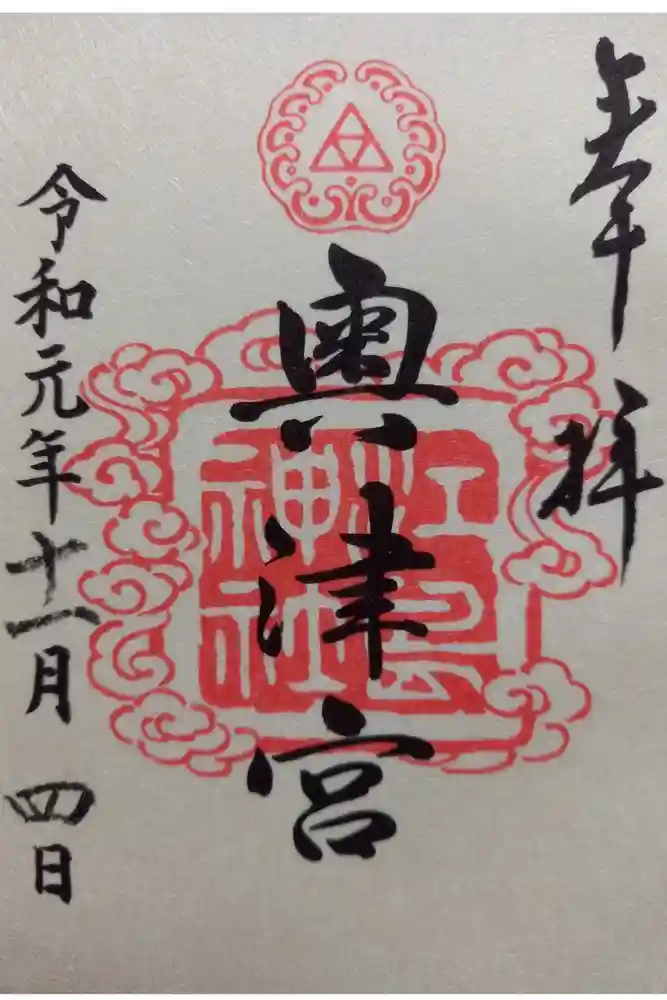 奉拝
奥津宮
江島
神社
令和元年十一月四日